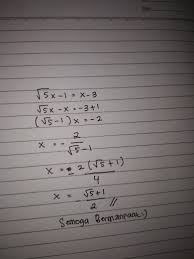 √5x-1 = x-3
√5x-x = -3+1
(√5-1)x = -2
x = - 2/(√5-1)
x = - 2(√5+1)/4
x = (√5+1)/2
Semoga Bermanfaat :)